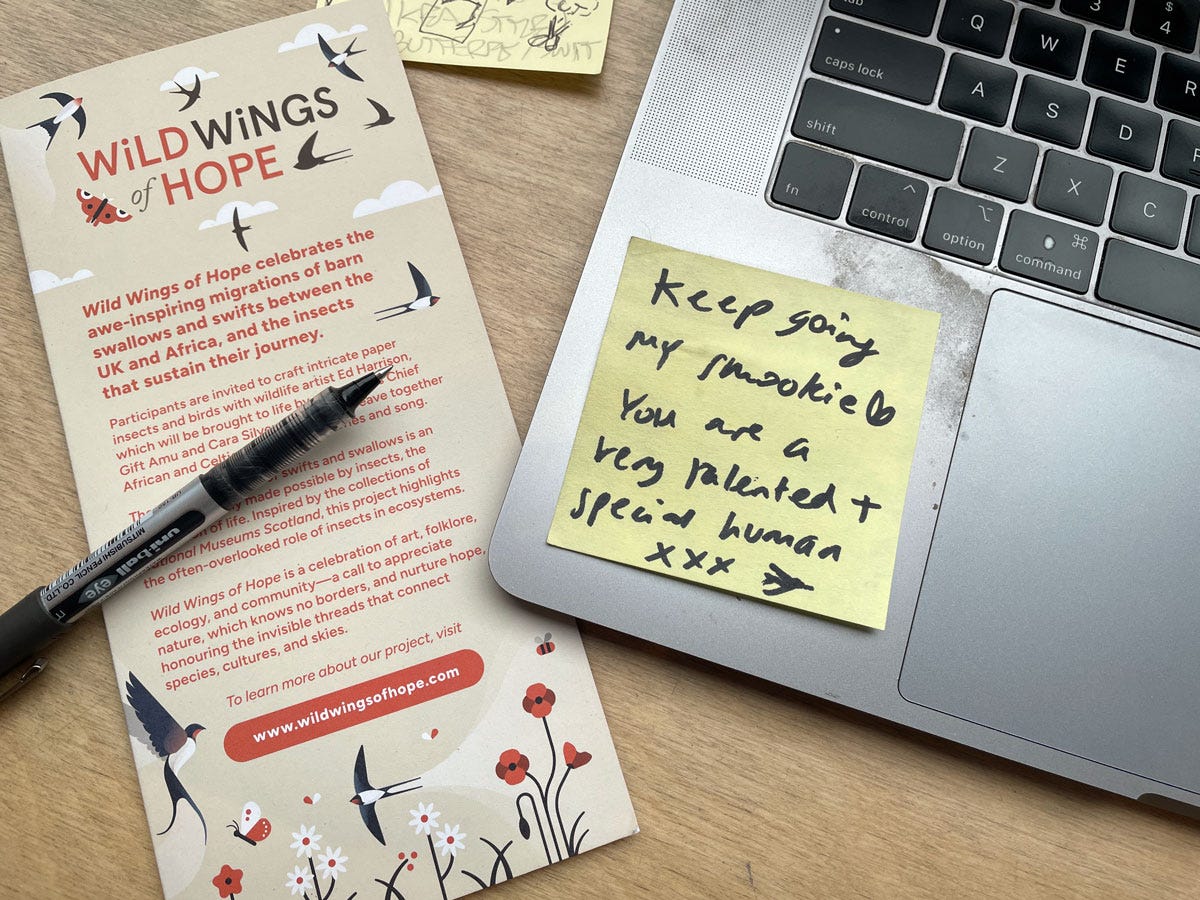 WiLD WiNGS
of HOPE
Wild Wings of Hope celebrates the
awe-inspiring migrations of barn
swallows and swifts between the
UK and Africa, and the insects
that sustain their journey.
Participants are invited to craft intricate paper
insects and birds with wildlife artist Ed Harrison,
which will be brought to life by Chief
Gift Amu and Cara Silv weave together
African and Celti and song.
swifts and swallows is an
made possible by insects, the
of life. Inspired by the collections of
National Museums Scotland, this project highlights
the often-overlooked role of insects in ecosystems.
Wild Wings of Hope is a celebration of art, folklore,
ecology, and community—a call to appreciate
nature, which knows no borders, and nurture hope,
honouring the invisible threads that connect
species, cultures, and skies.
To learn more about our project, visit
www.wildwingsofhope.com
uni-ball eye
MITSUBISHI PENCIL CO.LTD
Keep going
my smookie
You are a
very talented +
special human
xxx
tab
Q
W
E
R
3
$
4
caps lock
A
S
D
F
shift
Z
X
C
fn
control
option
command